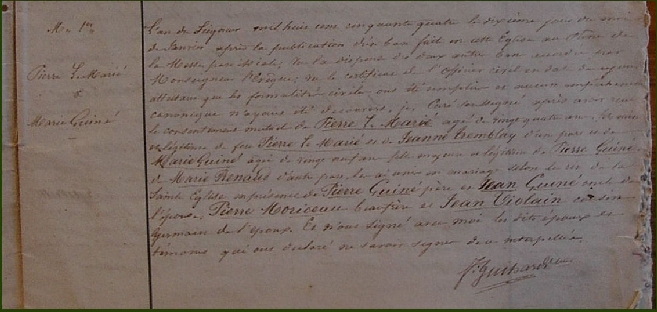 M. 1er
Pierre Le Marié
&
Marie Guiné
L'an du Seigneur mil huit cent cinquante quatre le dixième jour du mois
de Janvier après la publication d'un ban fait en cette Eglise au Prône de
la Messe paroissiale; Vu la dispense de deux autres bans accordée par
Monseigneur l'Evêque, vu le certificat de l'officier civil en date
attestant que les formalités civiles ont été remplies et aucun empêchement
canonique n'ayant été découvert, je, Curé soussigné après avoir reçu
le consentement mutuel de Pierre Le Marié agé de vingt quatre ans,
et légitime de feu Pierre Le Marié et de Jeanne Tremblay d'un part et de
Marie Guiné agée de vingt un an fille majeure et légitime de Pierre Guiné
de Marie Renaud d'autre part, les ai unis en mariage selon les rits de la
Sainte Eglise en présence de Pierre Guiné père et Jean Guiné oncle de
l'épouse, Pierre Moriceau beaufrère et Jean Violain cousin
germain de l'époux. Et n'ont signé avec moi les dits époux et
témoins qui ont déclaré ne savoir signer de ce interpellés.